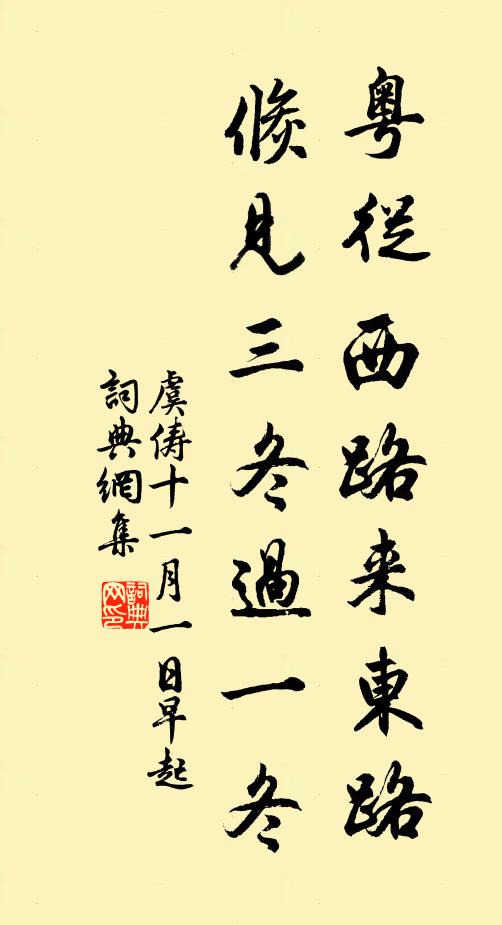 粤從西路来東路
倏見三冬過一冬
虞儔十一月一日早起
詞典網集
詞典
网印